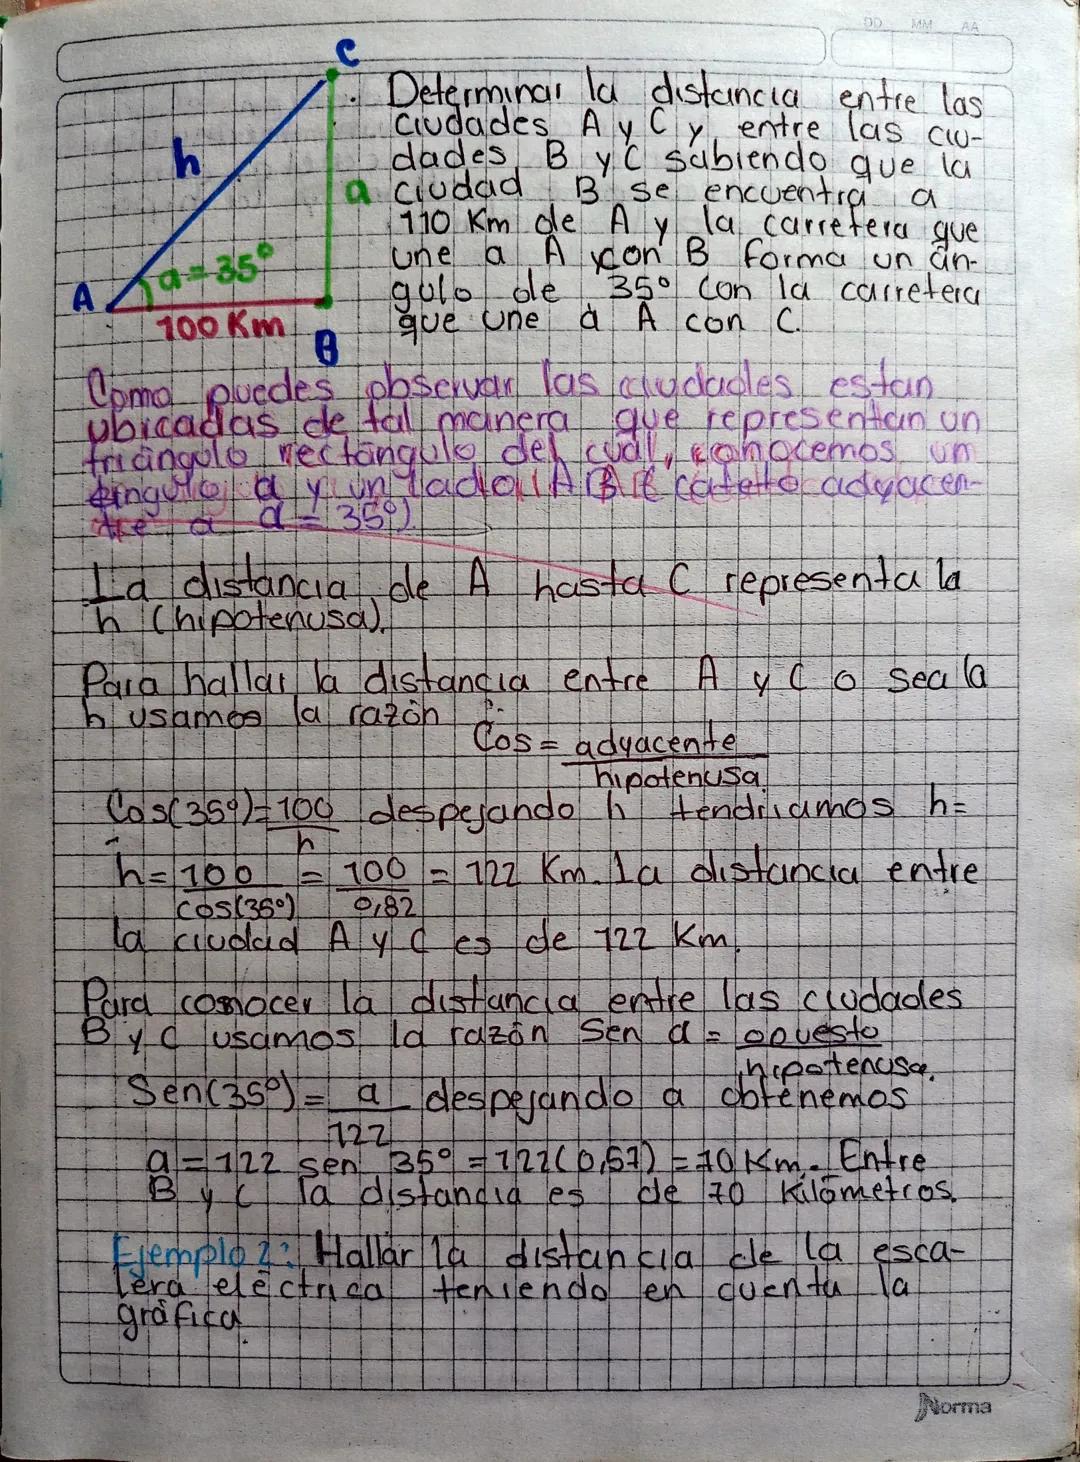 DD MM AA
C
h
a
a=35°
A
100 Km
B
. Determinar la distancia entre las
ciudades A y C y entre las ciu-
dades B y C sabiendo que la
ciudad B se encuentra a
110 Km de A y la carretera que
une a A con B forma un án-
gulo de 35° con la carretera
que une a A con C.
Como puedes observar las ciudades estan
ubicadas de tal manera que representan un
triángulo rectángulo del cual, conocemos un
ángulo a y un lado (AB
cateto adyacen-
te a a = 35°)
La distancia de A hasta C representa la
h (hipotenusa).
Para hallar la distancia entre A y C o sea la
h usamos la razón :
Cos = adyacente
hipotenusa
Cos(35°)=100 despejando h tendriamos h=
h
h= 100 = 100 = 122 Km. La distancia entre
cos(35°) 0,82
la ciudad A y C es de 122 Km.
Para conocer la distancia entre las ciudades
B y C usamos la razón Sen a = opuesto
hipotenusa.
Sen(35°)= a despejando a obtenemos
122
a = 122 sen 35° = 122(0,57) = 70 Km. Entre
B y C la distancia es de 70 Kilómetros.
Ejemplo 2: Hallar la distancia de la esca-
lera eléctrica teniendo en cuenta la
gráfica.
Norma